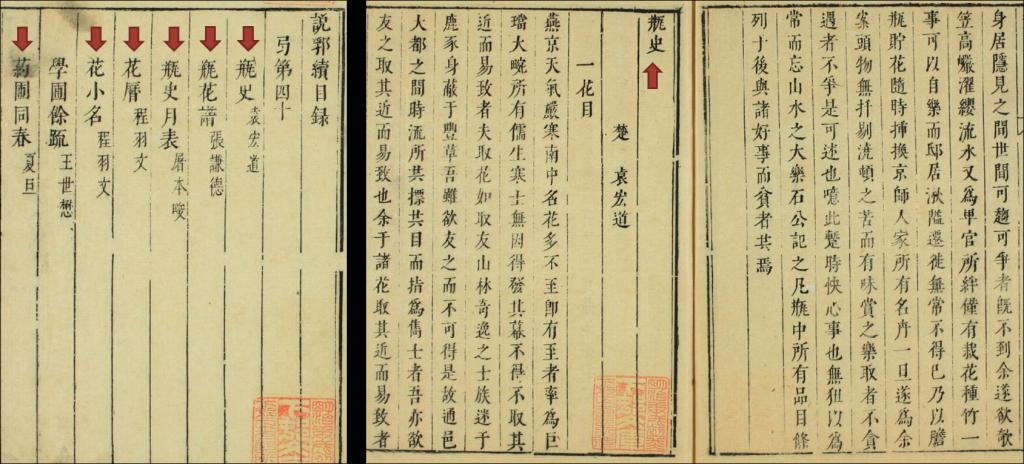 說郛續目錄
弓第四十
瓶史 袁宏道
瓶花譜 張謙德
瓶史月表 屠本畯
花曆 程羽文
花小名 程羽文
學圃餘疏 王世懋
药圃同春 夏旦
身居隱見之間世間可趨可爭者既不到余遂欲欹
笠高巖濯纓流水又為卑官所絆僅有栽花種竹一
事可以自樂而邸居湫隘遷徙無常不得已乃以膽
瓶貯花隨時揷換京師人家所有名卉一旦遂為余
案頭物無扞剔澆頓之苦而有味賞之樂取者不貪
遇者不爭是可述也噫此蹔時快心事也無狃以為
常而忘山水之大樂石公記之凡瓶中所有品目條
列于後與諸好事而貧者共焉
瓶史
楚 袁宏道
一花目
燕京天氣嚴寒南中名花多不至即有至者率為巨
璫大畹所有儒生寒士無因得發其幕不得不取其
近而易致者夫取花如取友山林奇逸之士族迷于
鹿豕身蔽于豐草吾雖欲友之而不可得是故通邑
大都之間時流所共摽共目而指為雋士者吾亦欲
友之取其近而易致也余于諸花取其近而易致者